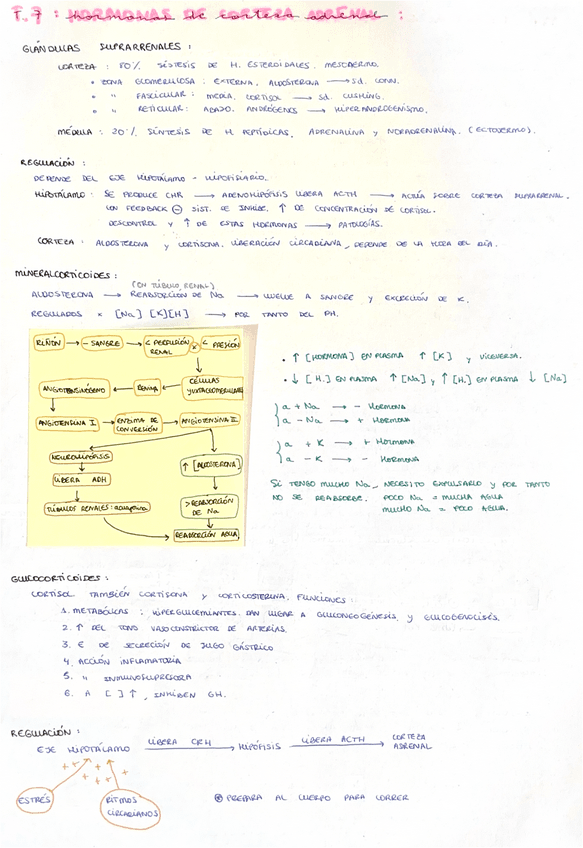 T.7 : HORMONAS DE CORTEZA ADRENAL :
GLÁNDULAS SUPRARRENALES :
CORTEZA : 80% SÍNTESIS DE H. ESTEROIDALES. MESODERMO.
• ZONA GLOMERULOSA : EXTERNA, ALDOSTERONA → Sd. CONN.
• " FASCICULAR : MEDIA, CORTISOL → Sd. CUSHING.
• " RETICULAR : ABAJO. ANDRÓGENOS → HIPERANDROGENISMO.
MÉDULA : 20% SÍNTESIS DE H. PEPTÍDICAS, ADRENALINA Y NORADRENALINA. (ECTODERMO).
REGULACIÓN :
DEPENDE DEL EJE HIPOTÁLAMO - HIPOFISIARIO.
HIPOTÁLAMO : SE PRODUCE CHR → ADENOHIPÓFISIS LIBERA ACTH → ACTÚA SOBRE CORTEZA SUPRARRENAL.
CON FEEDBACK ⊖ SIST. SE INHIBE, ↑ DE CONCENTRACIÓN DE CORTISOL.
DESCONTROL Y ↑ DE ESTAS HORMONAS → PATOLOGÍAS.
CORTEZA : ALDOSTERONA Y CORTISONA. LIBERACIÓN CIRCADIANA, DEPENDE DE LA HORA DEL DÍA.
MINERALCORTICOIDES :
(EN TÚBULO RENAL)
ALDOSTERONA → REABSORCIÓN DE Na → VUELVE A SANGRE Y EXCRECIÓN DE K.
REGULADOS x [Na] [K] [H] → POR TANTO DEL PH.
RIÑÓN → - SANGRE → < PERFUSIÓN RENAL x < PRESIÓN
CÉLULAS YUXTAGLOMERULARES
RENINA
ANGIOTENSINÓGENO
ANGIOTENSINA I → ENZIMA DE CONVERSIÓN → ANGIOTENSINA II
NEUROHIPÓFISIS
LIBERA ADH
TÚBULOS RENALES : acuaporina
↑ [ALDOSTERONA]
> REABSORCIÓN DE Na
REABSORCIÓN AGUA
• ↑ [HORMONA] EN PLASMA ↑ [K] Y VICEVERSA.
• ↓ [H.] EN PLASMA ↑ [Na] y ↑ [H.] EN PLASMA ↓ [Na]
a + Na → - HORMONA
a - Na → + HORMONA
a + K → + HORMONA
a - K → - HORMONA
SI TENGO MUCHO Na, NECESITO EXPULSARLO Y POR TANTO
NO SE REABSORBE. POCO Na = MUCHA AGUA
MUCHO Na = POCO AGUA.
GLUCOCORTICOIDES :
CORTISOL TAMBIÉN CORTISONA Y CORTICOSTERONA. FUNCIONES :
1. METABÓLICAS : HIPERGLUCEMIANTES. DAN LUGAR A GLUCONEOGÉNESIS Y GLUCOGENOLISIS.
2. ↑ DEL TONO VASOCONSTRICTOR DE ARTERIAS.
3. E DE SECRECIÓN DE JUGO GÁSTRICO
4. ACCIÓN INFLAMATORIA
5. " INMUNOSUPRESORA
6. A [ ] ↑, INHIBEN GH.
REGULACIÓN :
EJE HIPOTÁLAMO LIBERA CRH → HIPÓFISIS LIBERA ACTH → CORTEZA ADRENAL
ESTRÉS
RITMOS CIRCADIANOS
PREPARA AL CUERPO PARA CORRER